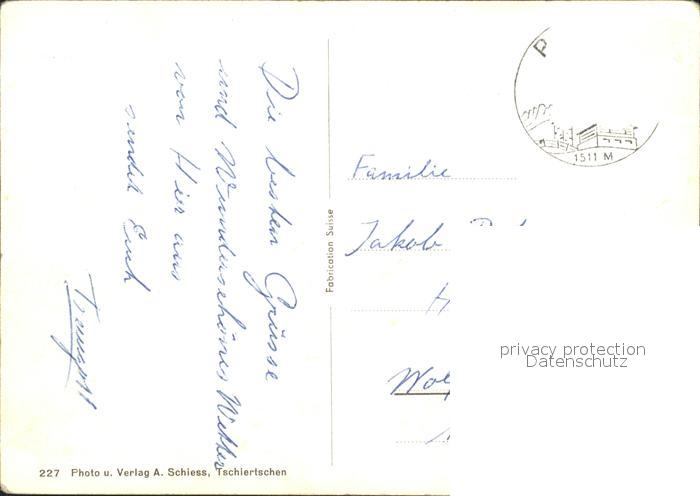 Die besten Grüsse
und Wunderschönes Wetter
von Hier aus
sendet Euch
Traugott
Fabrication Suisse
227 Photo u. Verlag A. Schiess, Tschiertschen
P
1511 M
Familie
Jakob
privacy protection
Datenschutz